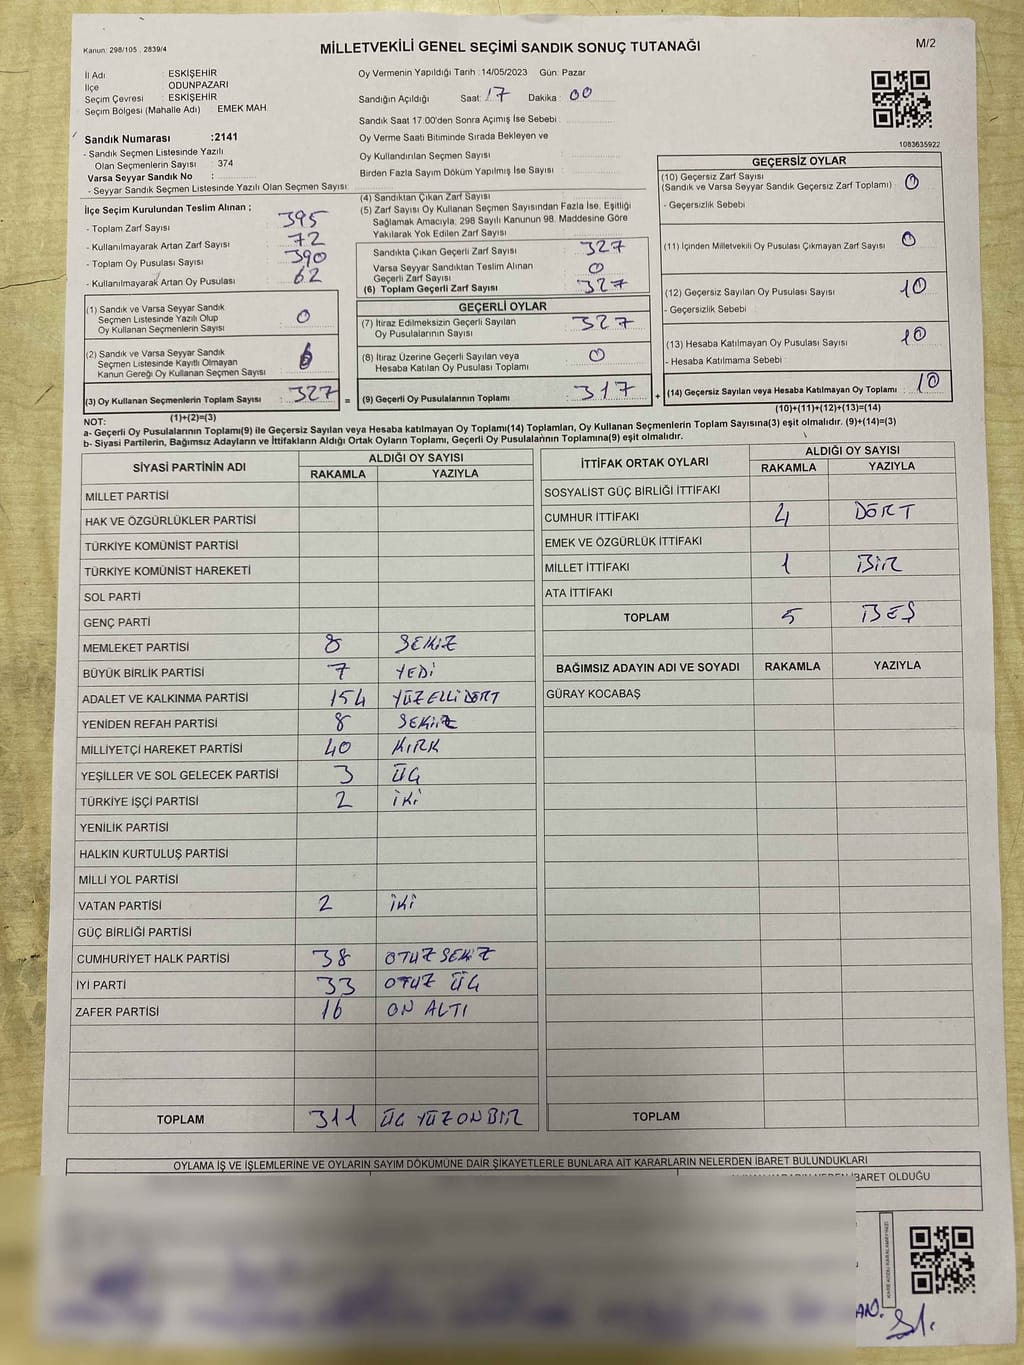 Kanun: 298/105 , 2839/4
MİLLETVEKİLİ GENEL SEÇİMİ SANDIK SONUÇ TUTANAĞI
M/2
İl Adı : ESKİŞEHİR
İlçe : ODUNPAZARI
Seçim Çevresi : ESKİŞEHİR
Seçim Bölgesi (Mahalle Adı) : EMEK MAH
Sandık Numarası :2141
- Sandık Seçmen Listesinde Yazılı
Olan Seçmenlerin Sayısı : 374
Varsa Seyyar Sandık No :
- Seyyar Sandık Seçmen Listesinde Yazılı Olan Seçmen Sayısı:
Oy Vermenin Yapıldığı Tarih :14/05/2023 Gün: Pazar
Sandığın Açıldığı Saat: 17 Dakika : 00
Sandık Saat 17.00'den Sonra Açımış İse Sebebi :
Oy Verme Saati Bitiminde Sırada Bekleyen ve
Oy Kullandırılan Seçmen Sayısı
Birden Fazla Sayım Döküm Yapılmış İse Sayısı :
1083635922
İlçe Seçim Kurulundan Teslim Alınan ;
- Toplam Zarf Sayısı : 395
- Kullanılmayarak Artan Zarf Sayısı : 72
- Toplam Oy Pusulası Sayısı : 390
- Kullanılmayarak Artan Oy Pusulası : 62
(1) Sandık ve Varsa Seyyar Sandık
Seçmen Listesinde Yazılı Olup
Oy Kullanan Seçmenlerin Sayısı : 0
(2) Sandık ve Varsa Seyyar Sandık
Seçmen Listesinde Kayıtlı Olmayan
Kanun Gereği Oy Kullanan Seçmen Sayısı :
(3) Oy Kullanan Seçmenlerin Toplam Sayısı : 327 =
(1)+(2)=(3)
(4) Sandıktan Çıkan Zarf Sayısı :
(5) Zarf Sayısı Oy Kullanan Seçmen Sayısından Fazla İse, Eşitliği
Sağlamak Amacıyla, 298 Sayılı Kanunun 98. Maddesine Göre
Yakılarak Yok Edilen Zarf Sayısı :
Sandıkta Çıkan Geçerli Zarf Sayısı : 327
Varsa Seyyar Sandıktan Teslim Alınan
Geçerli Zarf Sayısı : 0
(6) Toplam Geçerli Zarf Sayısı : 327
GEÇERLİ OYLAR
(7) İtiraz Edilmeksizin Geçerli Sayılan
Oy Pusulalarının Sayısı : 327
(8) İtiraz Üzerine Geçerli Sayılan veya
Hesaba Katılan Oy Pusulası Toplamı : 0
(9) Geçerli Oy Pusulalarının Toplamı : 317 +
GEÇERSİZ OYLAR
(10) Geçersiz Zarf Sayısı
(Sandık ve Varsa Seyyar Sandık Geçersiz Zarf Toplamı) : 0
- Geçersizlik Sebebi
(11) İçinden Milletvekili Oy Pusulası Çıkmayan Zarf Sayısı : 0
(12) Geçersiz Sayılan Oy Pusulası Sayısı : 10
- Geçersizlik Sebebi :
(13) Hesaba Katılmayan Oy Pusulası Sayısı : 10
- Hesaba Katılmama Sebebi :
(14) Geçersiz Sayılan veya Hesaba Katılmayan Oy Toplamı : 10
(10)+(11)+(12)+(13)=(14)
NOT:
a- Geçerli Oy Pusulalarının Toplamı(9) ile Geçersiz Sayılan veya Hesaba katılmayan Oy Toplamı(14) Toplamları, Oy Kullanan Seçmenlerin Toplam Sayısına(3) eşit olmalıdır. (9)+(14)=(3)
b- Siyasi Partilerin, Bağımsız Adayların ve İttifakların Aldığı Ortak Oyların Toplamı, Geçerli Oy Pusulalarının Toplamına(9) eşit olmalıdır.
SİYASİ PARTİNİN ADI ALDIĞI OY SAYISI
RAKAMLA YAZIYLA
MİLLET PARTİSİ
HAK VE ÖZGÜRLÜKLER PARTİSİ
TÜRKİYE KOMÜNİST PARTİSİ
TÜRKİYE KOMÜNİST HAREKETİ
SOL PARTİ
GENÇ PARTİ
MEMLEKET PARTİSİ 8 SEKİZ
BÜYÜK BİRLİK PARTİSİ 7 YEDİ
ADALET VE KALKINMA PARTİSİ 154 YÜZELLİDÖRT
YENİDEN REFAH PARTİSİ 8 SEKİZ
MİLLİYETÇİ HAREKET PARTİSİ 40 KIRK
YEŞİLLER VE SOL GELECEK PARTİSİ 3 ÜÇ
TÜRKİYE İŞÇİ PARTİSİ 2 İKİ
YENİLİK PARTİSİ
HALKIN KURTULUŞ PARTİSİ
MİLLİ YOL PARTİSİ
VATAN PARTİSİ 2 İKİ
GÜÇ BİRLİĞİ PARTİSİ
CUMHURİYET HALK PARTİSİ 38 OTUZ SEKİZ
İYİ PARTİ 33 OTUZ ÜÇ
ZAFER PARTİSİ 16 ON ALTI
TOPLAM 311 ÜÇ YÜZ ON BİR
İTTİFAK ORTAK OYLARI ALDIĞI OY SAYISI
RAKAMLA YAZIYLA
SOSYALİST GÜÇ BİRLİĞİ İTTİFAKI
CUMHUR İTTİFAKI 4 DÖRT
EMEK VE ÖZGÜRLÜK İTTİFAKI
MİLLET İTTİFAKI 1 BİR
ATA İTTİFAKI
TOPLAM 5 BEŞ
BAĞIMSIZ ADAYIN ADI VE SOYADI RAKAMLA YAZIYLA
GÜRAY KOCABAŞ
TOPLAM
OYLAMA İŞ VE İŞLEMLERİNE VE OYLARIN SAYIM DÖKÜMÜNE DAİR ŞİKAYETLERLE BUNLARA AİT KARARLARIN NELERDEN İBARET BULUNDUKLARI
İBARET OLDUĞU